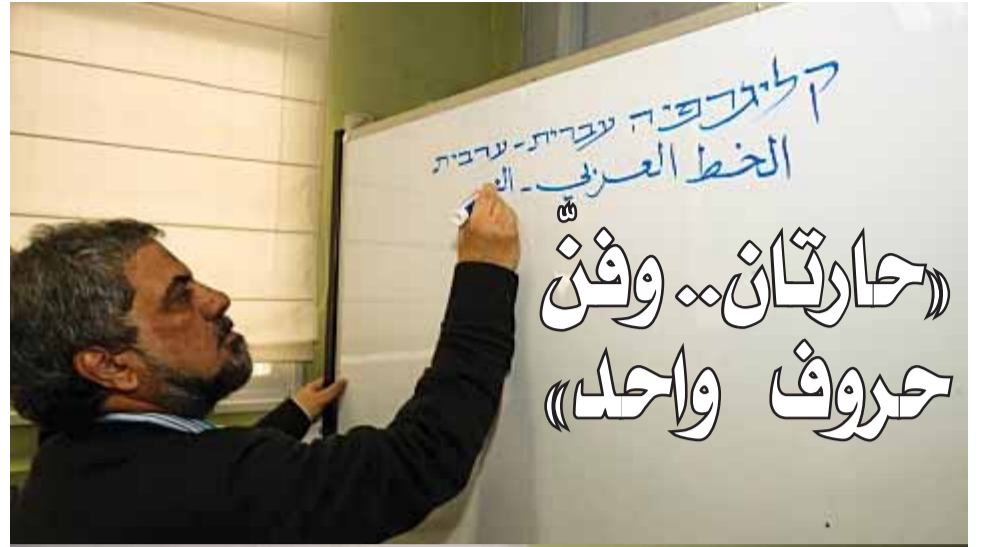 קליגרפיה עברית - ערבית
الخط العربي -
«حارتان.. وفنٌّ
حروف واحد»